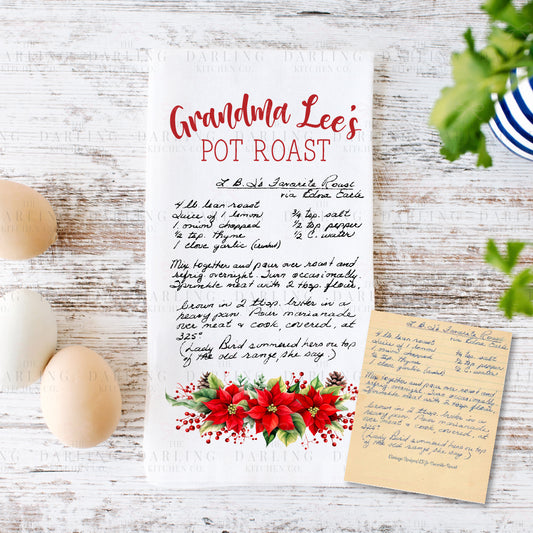 Grandma Lee's
POT ROAST
L.B.J's Favorite Roast
via Edna Earle
4 lb. lean roast
Juice of 1 lemon
1 onion chopped
½ tsp. thyme
1 clove garlic (crushed)
¾ tsp. salt
½ tsp pepper
½ C. water
Mix together and pour over roast and
refrig. overnight. Turn occasionally.
Sprinkle meat with 2 tbsp. flour.
Brown in 2 tbsp. butter in a
heavy pan. Pour marianade
over meat & cook, covered, at
325°
(Lady Bird summered hers on top
of the old range, she say.)
L.B.J's Favorite Roast
via Edna Earle
4 lb lean roast
Juice of 1 lemon
1 onion, chopped
½ tsp. thyme
1 clove garlic (crushed)
¾ tsp. salt
½ tsp pepper
½ C. water
Mix together and pour over roast and
refrig overnight. Turn occasionally.
Sprinkle meat with 2 tbsp flour.
Brown in 2 tbsp. butter in a
heavy pan. Pour marianade
over meat & cook, covered, at
325°
(Lady Bird summered hers on top
of the old range, she say.)
THE
DARLING
KITCHEN CO.